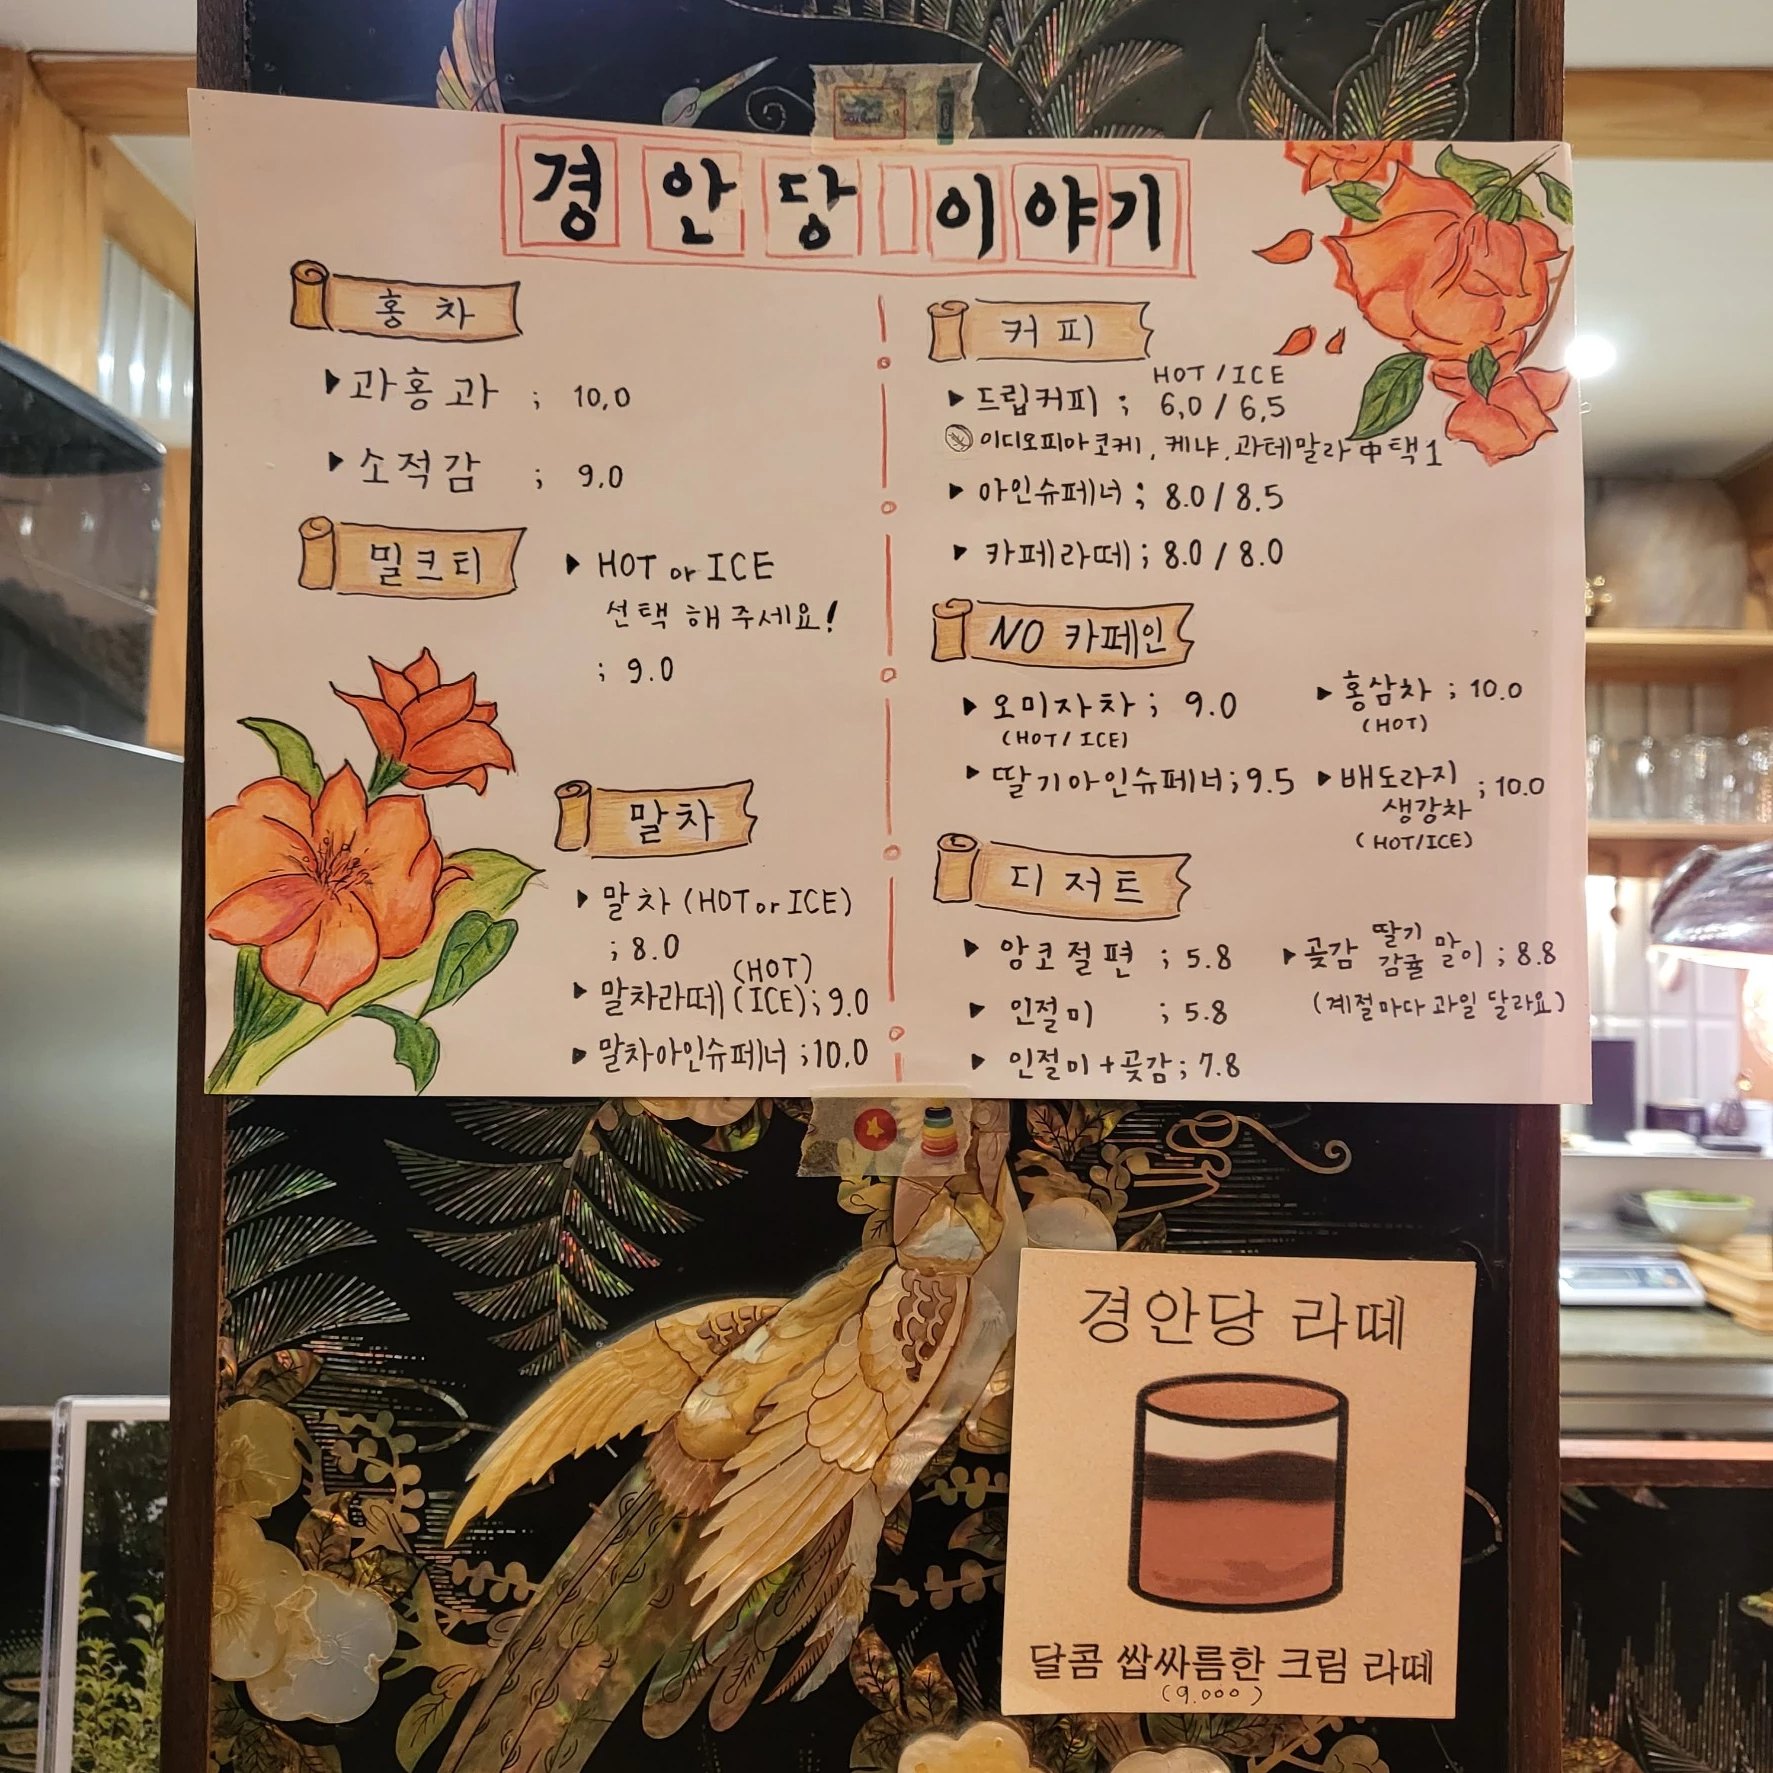 경안당 이야기
홍차
▶ 과홍과 ; 10,0
▶ 소적감 ; 9.0
밀크티
▶ HOT or ICE
선택 해 주세요!
; 9.0
말차
▶ 말차 (HOT or ICE)
; 8.0
▶ 말차라떼 (HOT) (ICE) ; 9.0
▶ 말차아인슈페너 ; 10.0
커피
HOT / ICE
▶ 드립커피 ; 6,0 / 6,5
이디오피아 코케, 케냐, 과테말라 中 택1
▶ 아인슈페너 ; 8.0 / 8.5
▶ 카페라떼 ; 8.0 / 8.0
NO 카페인
▶ 오미자차 ; 9.0
(HOT / ICE)
▶ 딸기아인슈페너 ; 9.5
▶ 홍삼차 ; 10.0
(HOT)
▶ 배도라지
생강차 ; 10.0
(HOT/ICE)
디저트
▶ 앙코절편 ; 5.8
▶ 인절미 ; 5.8
▶ 인절미 + 곶감 ; 7.8
▶ 곶감 딸기 감귤 말이 ; 8.8
(계절마다 과일 달라요)
경안당 라떼
달콤 쌉싸름한 크림 라떼
(9.000)